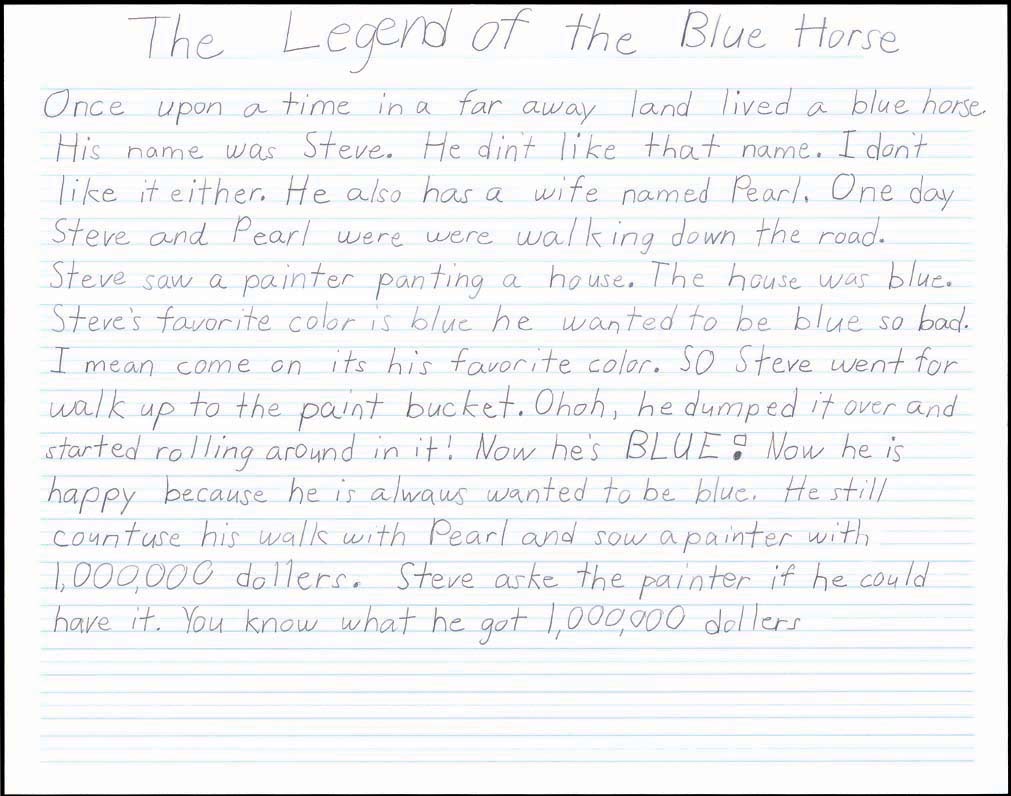 The Legend of the Blue Horse
Once upon a time in a far away land lived a blue horse.
His name was Steve. He din't like that name. I don't
like it either. He also has a wife named Pearl. One day
Steve and Pearl were were walking down the road.
Steve saw a painter panting a house. The house was blue.
Steve's favorite color is blue he wanted to be blue so bad.
I mean come on its his favorite color. SO Steve went for
walk up to the paint bucket. Ohoh, he dumped it over and
started rolling around in it! Now he's BLUE! Now he is
happy because he is alwaus wanted to be blue. He still
countuse his walk with Pearl and sow a painter with
1,000,000 dollers. Steve aske the painter if he could
have it. You know what he got 1,000,000 dollers